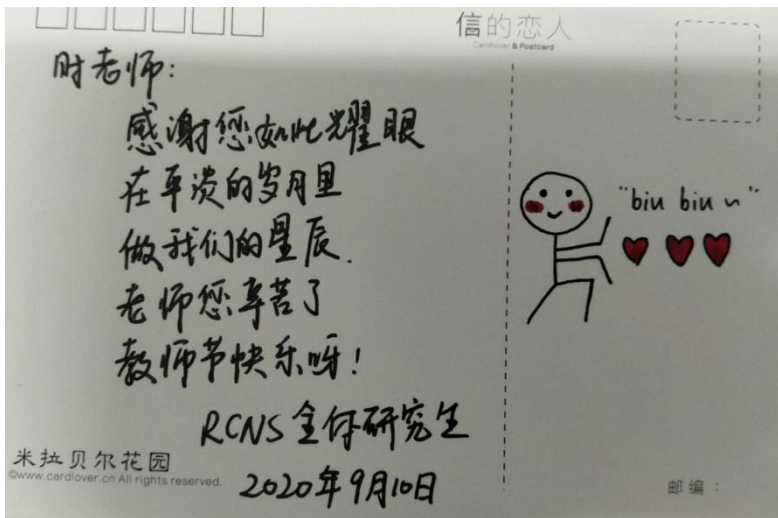 信的恋人
Cardlover & Postcard
时老师：
感谢您如此耀眼
在平淡的岁月里
做我们的星辰.
老师您辛苦了
教师节快乐呀！
RCNS全体研究生
2020年9月10日
"biu biu ~"
米拉贝尔花园
©www.cardlover.cn All rights reserved.
邮编：